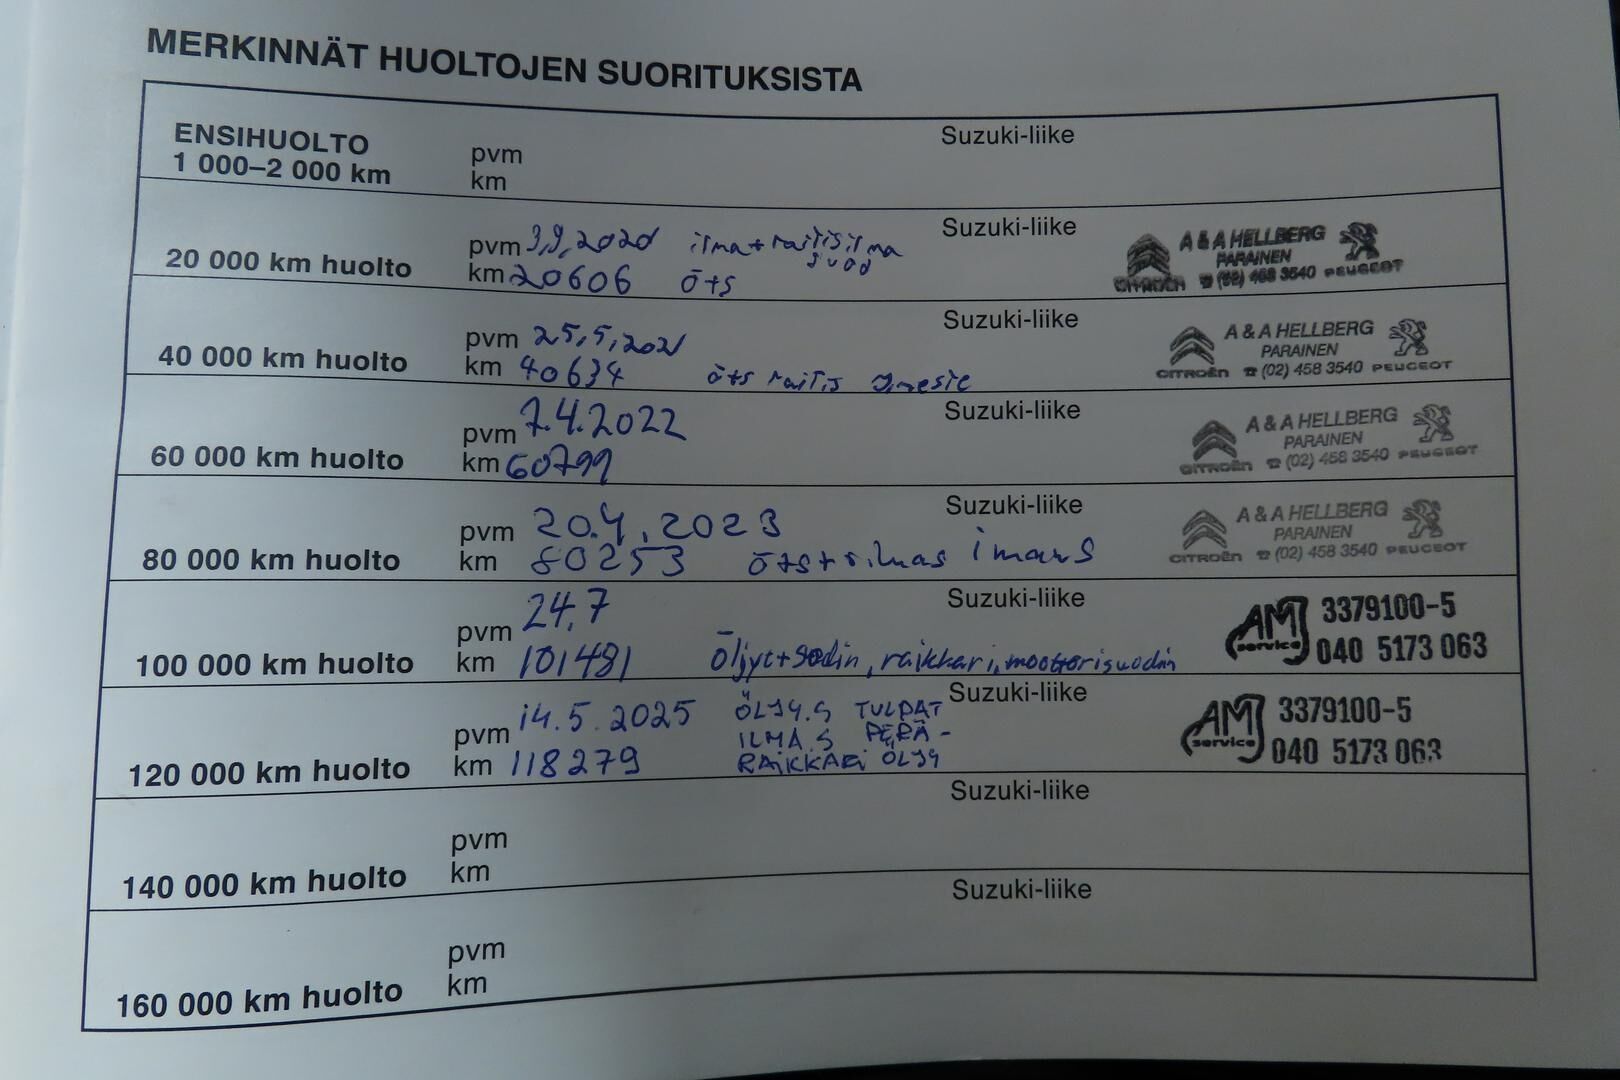 MERKINNÄT HUOLTOJEN SUORITUKSISTA
ENSIHUOLTO
1 000–2 000 km
pvm
km
Suzuki-liike
20 000 km huolto
pvm 3.9.2020 ilma+raitisilma
suod
km 20606 öts
Suzuki-liike
A & A HELLBERG
PARAINEN
CITROËN ☎ (02) 458 3540 PEUGEOT
40 000 km huolto
pvm 25.5.2021
km 40634 öts raitis
Suzuki-liike
A & A HELLBERG
PARAINEN
CITROËN ☎ (02) 458 3540 PEUGEOT
60 000 km huolto
pvm 7.4.2022
km 60799
Suzuki-liike
A & A HELLBERG
PARAINEN
CITROËN ☎ (02) 458 3540 PEUGEOT
80 000 km huolto
pvm 20.4.2023
km 80253
Suzuki-liike
A & A HELLBERG
PARAINEN
CITROËN ☎ (02) 458 3540 PEUGEOT
100 000 km huolto
pvm 24.7
km 101481 Öljyt+sodin, raikkari, moottorisuodin
Suzuki-liike
AM service
3379100-5
040 5173 063
120 000 km huolto
pvm 14.5.2025
km 118279
ÖLJY.S TULPAT
ILMA.S PERÄ-
RAIKKARI ÖLJY
Suzuki-liike
AM service
3379100-5
040 5173 063
140 000 km huolto
pvm
km
Suzuki-liike
160 000 km huolto
pvm
km
Suzuki-liike